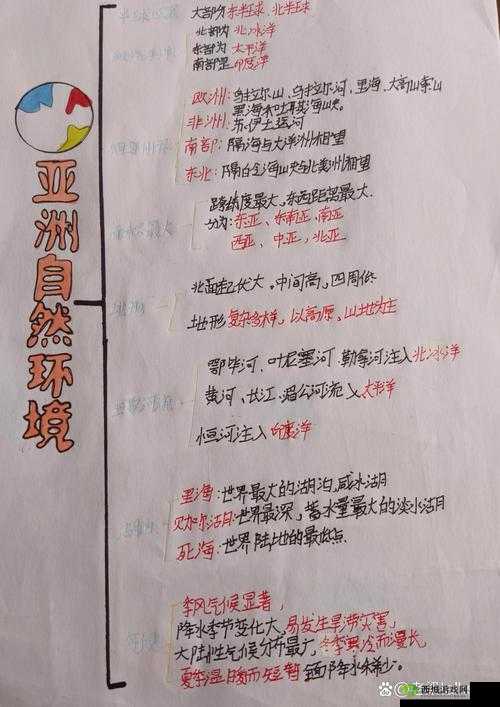 亚洲自然环境
大部分东半球、北半球
北部为北冰洋
东部为太平洋
南部是印度洋
欧洲:乌拉尔山、乌拉尔河、里海、大高加索山
黑海和土耳其海峡
非洲:苏伊士运河
南部:隔海与大洋洲相望
东北:隔白令海峡与北美洲相望
跨纬度最大,东西距离最大.
分为:东亚、东南亚、南亚
西亚、中亚、北亚
地面起伏大。中间高,四周低
地形复杂多样,以高原、山地为主
鄂毕河、叶尼塞河 勒拿河注入北冰洋
黄河、长江、湄公河流入太平洋
恒河注入印度洋
里海:世界最大的湖泊,咸水湖
贝加尔湖:世界最深,蓄水量最大的淡水湖
死海:世界陆地的最低点
季风气候显著,
降水季节变化大,易发生旱涝灾害,
大陆性气候分布最广,冬季寒冷而漫长
夏季湿暖而短暂 降水稀少。
西城游戏网